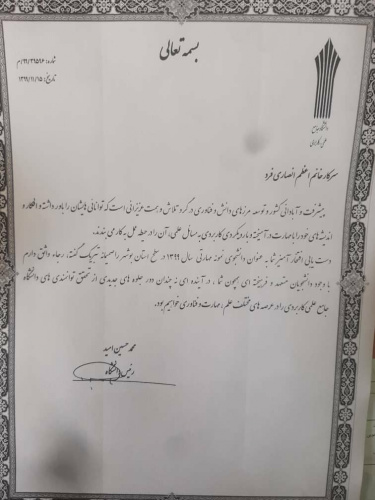 بسمه تعالی
شماره: ۹۹/۳۱۵۱۶/م
تاریخ: ۱۳۹۹/۱۱/۱۵
دانشگاه جامع
علمی کاربردی
سرکار خانم اعظم انصاری فرد
پیشرفت و آبادانی کشور و توسعه مرزهای دانش و فناوری در گرو تلاش و همت عزیزانی است که توانائی هایشان را باور داشته و افکار و
اندیشه های خود را با مهارت در آمیخته و با رویکردی کاربردی به مسائل علمی، آن را در حیطه عمل به کار می بندند.
دست یابی افتخار آمیز شما به عنوان دانشجوی نمونه مهارتی سال ۱۳۹۹ در سطح استان بوشهر را صمیمانه تبریک گفته، رجاء واثق دارم
با وجود دانشجویان متعهد و فرهیخته ای همچون شما، در آینده ای نه چندان دور جلوه های جدیدی از تحقق توانمندی های دانشگاه
جامع علمی کاربردی را در عرصه های مختلف علم، مهارت و فناوری خواهیم بود.
محمد حسین امید
رئیس دانشگاه